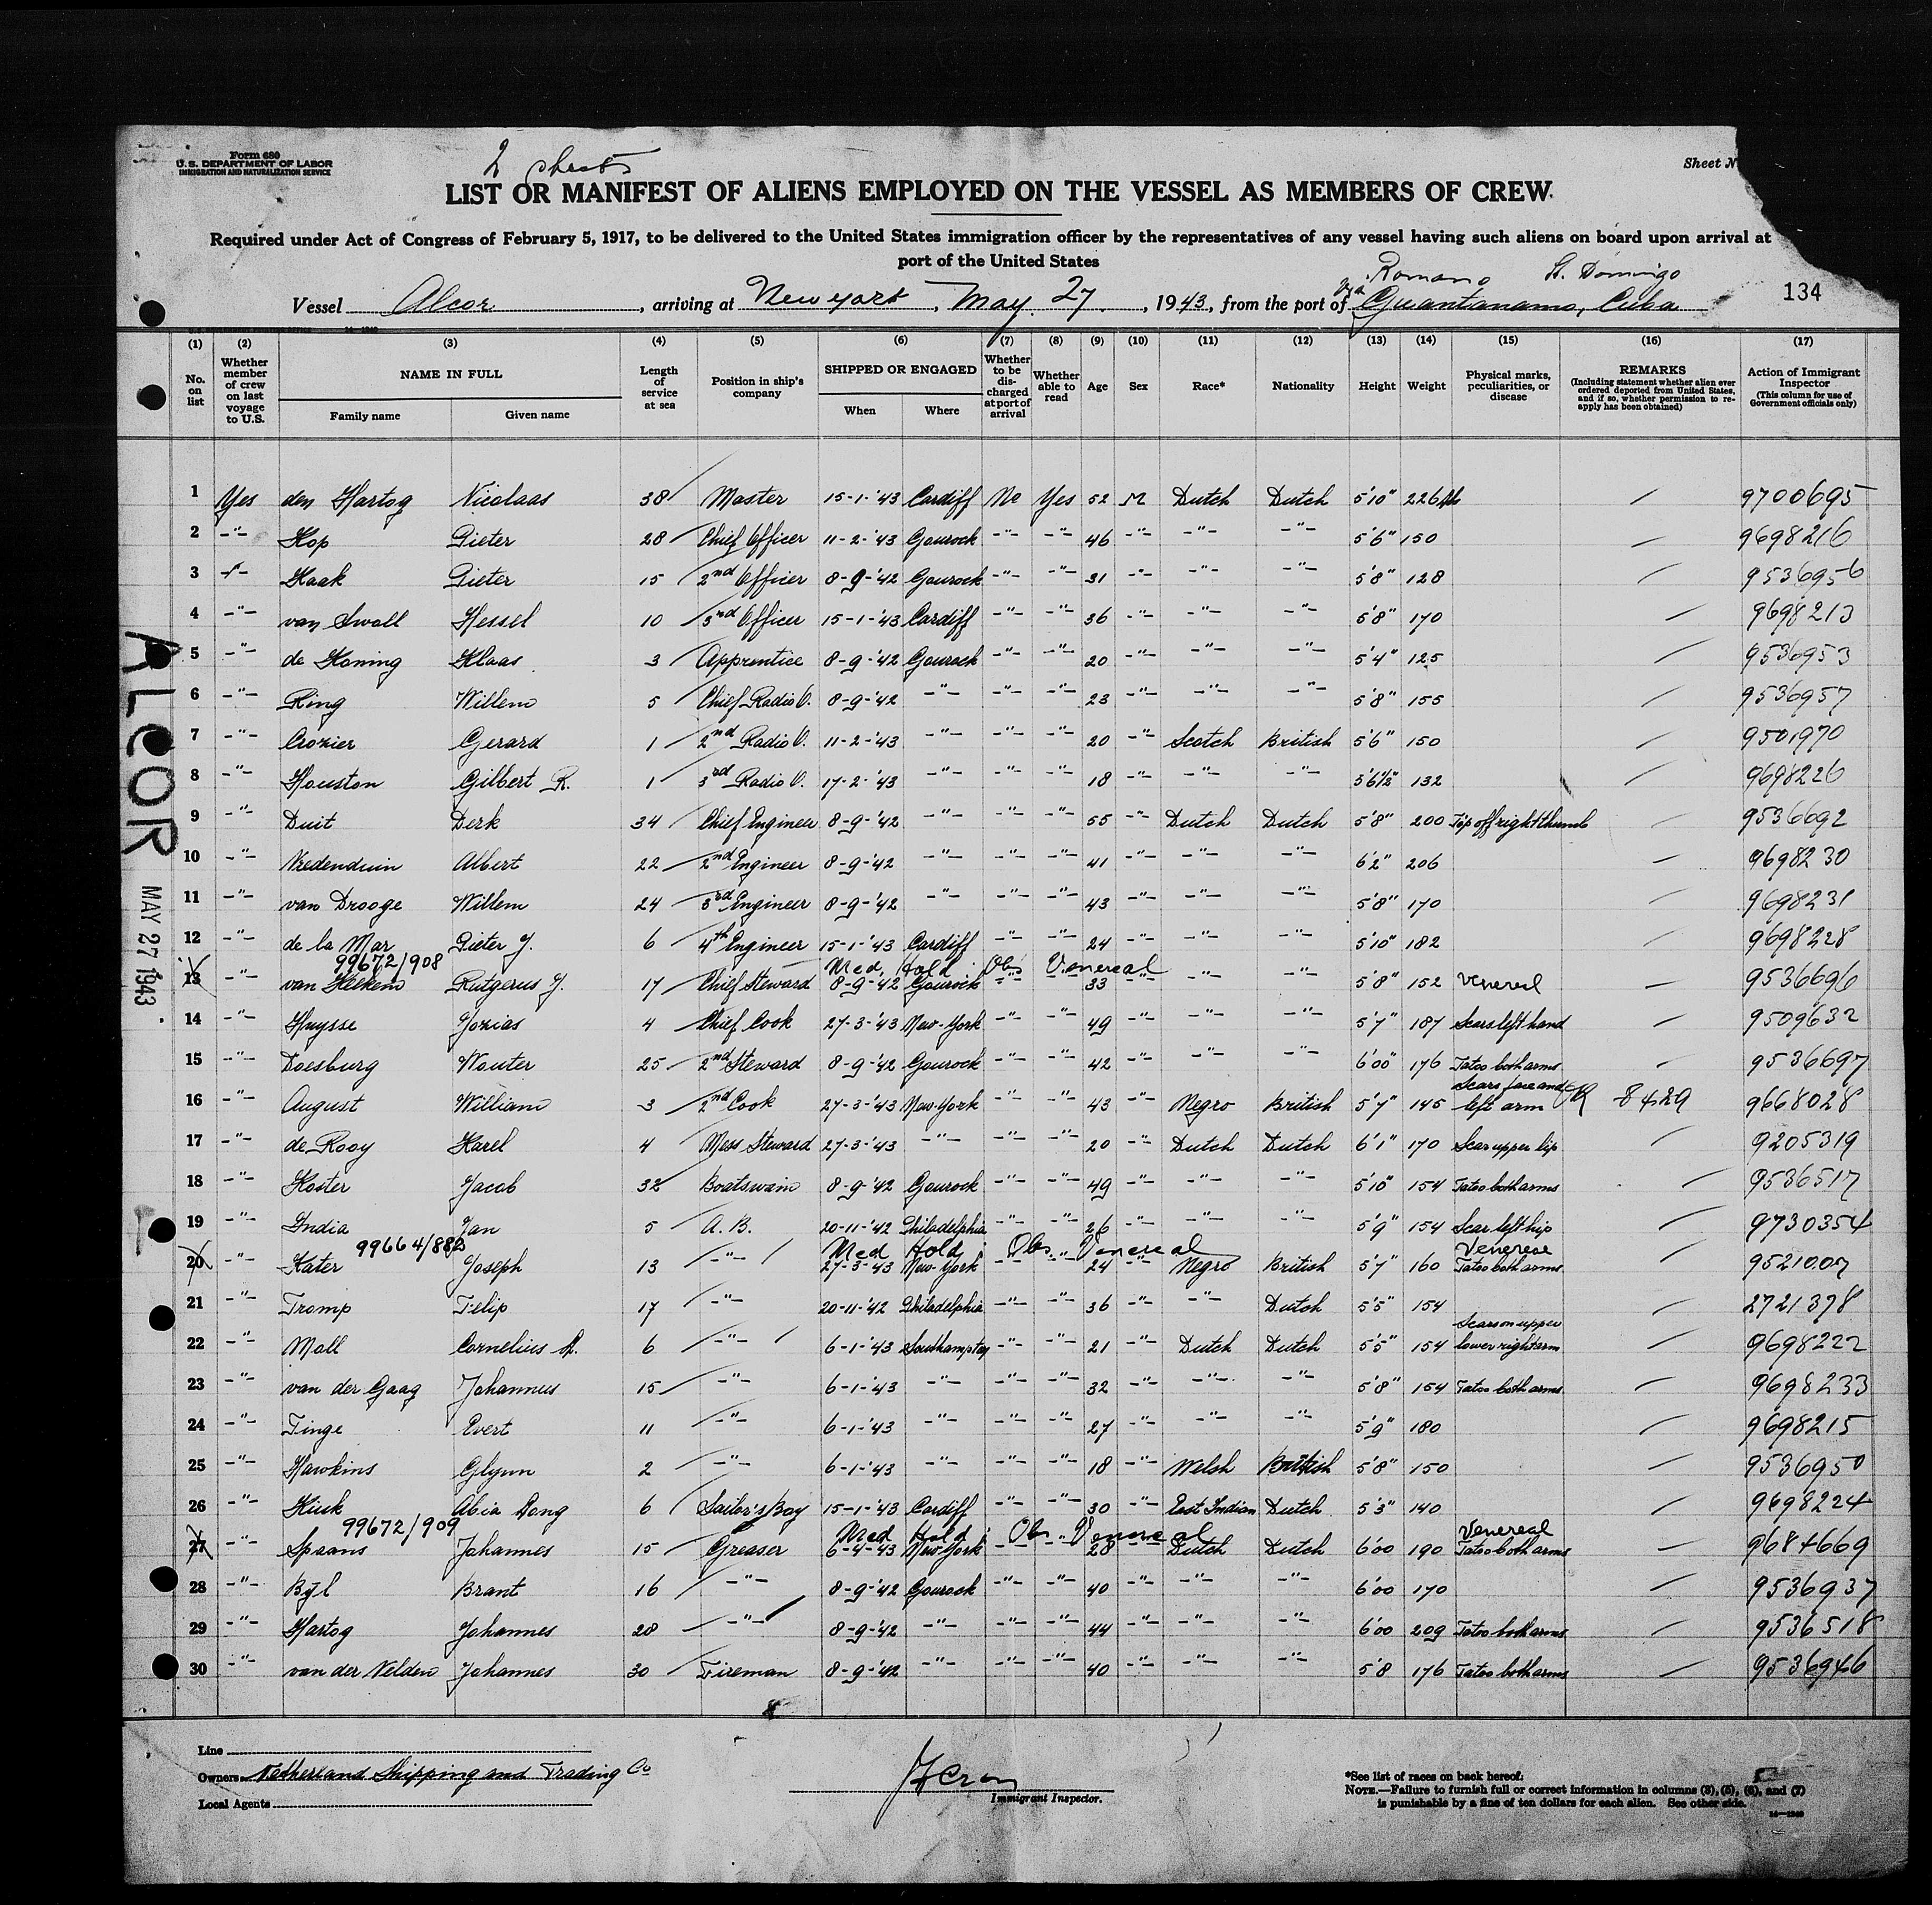 Form 680
U.S. DEPARTMENT OF LABOR
IMMIGRATION AND NATURALIZATION SERVICE
2 sheets
Sheet N
LIST OR MANIFEST OF ALIENS EMPLOYED ON THE VESSEL AS MEMBERS OF CREW
Required under Act of Congress of February 5, 1917, to be delivered to the United States immigration officer by the representatives of any vessel having such aliens on board upon arrival at
port of the United States
via Romano St. Domingo
Vessel Alcor, arriving at New york, May 27, 1943, from the port of Guantanamo, Cuba
134
(1) (2) (3) (4) (5) (6) (7) (8) (9) (10) (11) (12) (13) (14) (15) (16) (17)
No. on list Whether member of crew on last voyage to U.S. NAME IN FULL Family name Given name Length of service at sea Position in ship's company SHIPPED OR ENGAGED When Where Whether to be discharged at port of arrival Whether able to read Age Sex Race* Nationality Height Weight Physical marks, peculiarities, or disease REMARKS (Including statement whether alien ever ordered deported from United States, and if so, whether permission to reapply has been obtained) Action of Immigrant Inspector (This column for use of Government officials only)
1 Yes den Hartog Nicolaas 38 Master 15-1-'43 Cardiff No Yes 52 M Dutch Dutch 5'10" 226 lb / 9700695
2 -"- Kop Pieter 28 Chief Officer 11-2-'43 Gourock -"- -"- 46 -"- -"- -"- 5'6" 150 / 9698216
3 -"- Kaak Pieter 15 2nd Officer 8-9-'42 Gourock -"- -"- 31 -"- -"- -"- 5'8" 128 / 9536956
4 -"- van Swoll Hessel 10 3rd Officer 15-1-'43 Cardiff -"- -"- 36 -"- -"- -"- 5'8" 170 / 9698213
5 -"- de Koning Klaas 3 Apprentice 8-9-'42 Gourock -"- -"- 20 -"- -"- -"- 5'4" 125 / 9536953
6 -"- Ring Willem 5 Chief Radio O. 8-9-'42 -"- -"- -"- 23 -"- -"- -"- 5'8" 155 / 9536957
7 -"- Crozier Gerard 1 2nd Radio O. 11-2-'43 -"- -"- -"- 20 -"- Scotch British 5'6" 150 / 9501970
8 -"- Houston Gilbert R. 1 3rd Radio O. 17-2-'43 -"- -"- -"- 18 -"- -"- -"- 5'6½" 132 / 9698226
9 -"- Duit Derk 34 Chief Engineer 8-9-'42 -"- -"- -"- 55 -"- Dutch Dutch 5'8" 200 Top off right thumb / 9536692
10 -"- Vredenduin Albert 22 2nd Engineer 8-9-'42 -"- -"- -"- 41 -"- -"- -"- 6'2" 206 / 9698230
11 -"- van Drooge Willem 24 3rd Engineer 8-9-'42 -"- -"- -"- 43 -"- -"- -"- 5'8" 170 / 9698231
12 -"- de la Mar Pieter J. 6 4th Engineer 15-1-'43 Cardiff -"- -"- 24 -"- -"- -"- 5'10" 182 / 9698228
99672/908 Med. Hold Obs Venereal
13 -"- van Hekkem Rutgerus J. 17 Chief Steward 8-9-'42 Gourock -"- 33 -"- -"- -"- 5'8" 152 Venereal / 9536696
14 -"- Huysse Jozias 4 Chief Cook 27-3-'43 New-York -"- -"- 49 -"- -"- -"- 5'7" 187 Scars left hand / 9509632
15 -"- Doesburg Wouter 25 2nd Steward 8-9-'42 Gourock -"- -"- 42 -"- -"- -"- 6'00" 176 Tatoo both arms / 9536697
Scars face and
16 -"- August William 3 2nd Cook 27-3-'43 New-York -"- -"- 43 -"- Negro British 5'7" 145 left arm 8429 9668028
17 -"- de Rooy Karel 4 Mess Steward 27-3-'43 -"- -"- -"- 20 -"- Dutch Dutch 6'1" 170 Scar upper lip / 9205319
18 -"- Koster Jacob 32 Boatswain 8-9-'42 Gourock -"- -"- 49 -"- -"- -"- 5'10" 154 Tatoo both arms / 9536517
19 -"- India Jan 5 A.B. 20-11-'42 Philadelphia -"- -"- 26 -"- -"- -"- 5'9" 154 Scar left hip / 9730354
99664/882 Med Hold Obs. Venereal Venereal
20 -"- Kater Joseph 13 -"- 27-3-'43 New-York -"- -"- 24 -"- Negro British 5'7" 160 Tatoo both arms / 9521007
21 -"- Tromp Felip 17 -"- 20-11-'42 Philadelphia -"- -"- 36 -"- -"- Dutch 5'5" 154 / 2721378
Scars on upper
22 -"- Moll Cornelius A. 6 -"- 6-1-'43 Southampton -"- -"- 21 -"- Dutch Dutch 5'5" 154 lower right arm / 9698222
23 -"- van der Gaag Johannus 15 -"- 6-1-'43 -"- -"- -"- 32 -"- -"- -"- 5'8" 154 Tatoo both arms / 9698233
24 -"- Tinge Evert 11 -"- 6-1-'43 -"- -"- -"- 27 -"- -"- -"- 5'9" 180 / 9698215
25 -"- Hawkins Glynn 2 -"- 6-1-'43 -"- -"- -"- 18 -"- Welsh British 5'8" 150 / 9536950
26 -"- Kiuk Abia Dong 6 Sailor's Boy 15-1-'43 Cardiff -"- -"- 30 -"- East Indian Dutch 5'3" 140 / 9698224
99672/909 Med Hold Obs. Venereal Venereal
27 -"- Spaans Johannes 15 Greaser 6-4-'43 New-York -"- -"- 28 -"- Dutch Dutch 6'00 190 Tatoo both arms / 9684669
28 -"- Bÿl Brant 16 -"- 8-9-'42 Gourock -"- -"- 40 -"- -"- -"- 6'00 170 / 9536937
29 -"- Hartog Johannes 28 -"- 8-9-'42 -"- -"- -"- 44 -"- -"- -"- 6'00 209 Tatoo both arms / 9536518
30 -"- van der Velden Johannes 30 Fireman 8-9-'42 -"- -"- -"- 40 -"- -"- -"- 5'8 176 Tatoo both arms / 9536946
ALCOR
MAY 27 1943
Line
Owners Netherland Shipping and Trading Co
Local Agents
Immigrant Inspector.
*See list of races on back hereof.
NOTE.—Failure to furnish full or correct information in columns (3), (5), (6), and (7)
is punishable by a fine of ten dollars for each alien. See other side.